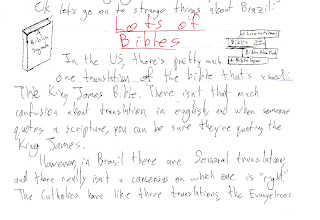 Ok let's go on to strange things about Brazil:
Lots of
Bibles
A
Bíblia
Sagrada
Bíblia
In the US, there's pretty much
one translation of the bible that's used:
The King James Bible. There isn't that much
confusion about translation in english, and when someone
quotes a scripture, you can be sure they're quoting the
King James.
However, in Brasil there are several translations,
and there really isn't a consensus on which one is "right"
The Catholics have like three translations, the Evangelicos